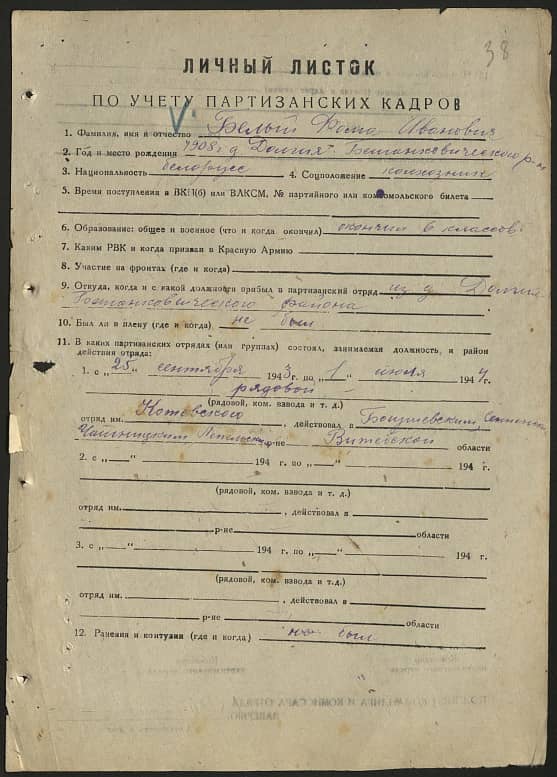 38
ЛИЧНЫЙ ЛИСТОК
ПО УЧЕТУ ПАРТИЗАНСКИХ КАДРОВ
1. Фамилия, имя и отчество Белый Фома Иванович
2. Год и место рождения 1908 г. д Долгия Бешанковического р-на
3. Национальность белорусс 4. Соцположение колхозник
5. Время поступления в ВКП(б) или ВЛКСМ, № партийного или комсомольского билета
6. Образование: общее и военное (что и когда окончил) окончил 6 классов
7. Каким РВК и когда призван в Красную Армию
8. Участие на фронтах (где и когда)
9. Откуда, когда и с какой должности прибыл в партизанский отряд из д Долгия
Бешанковического района
10. Был ли в плену (где и когда) не был
11. В каких партизанских отрядах (или группах) состоял, занимаемая должность, и район
действия отряда:
1. с „25" сентября 1943 г. по „1" июля 1944 г.
рядовой
(рядовой, ком. взвода и т. д.)
отряд им. Котовского, действовал в
Чашницким р-не Витебской области
2. с „ " 194 г. по „ " 194 г.
(рядовой, ком. взвода и т. д.)
отряд им. , действовал в
р-не области
3. с „ " 194 г. по „ " 194 г.
(рядовой, ком. взвода и т.д.)
отряд им. , действовал в
р-не области
12. Ранения и контузии (где и когда) не был